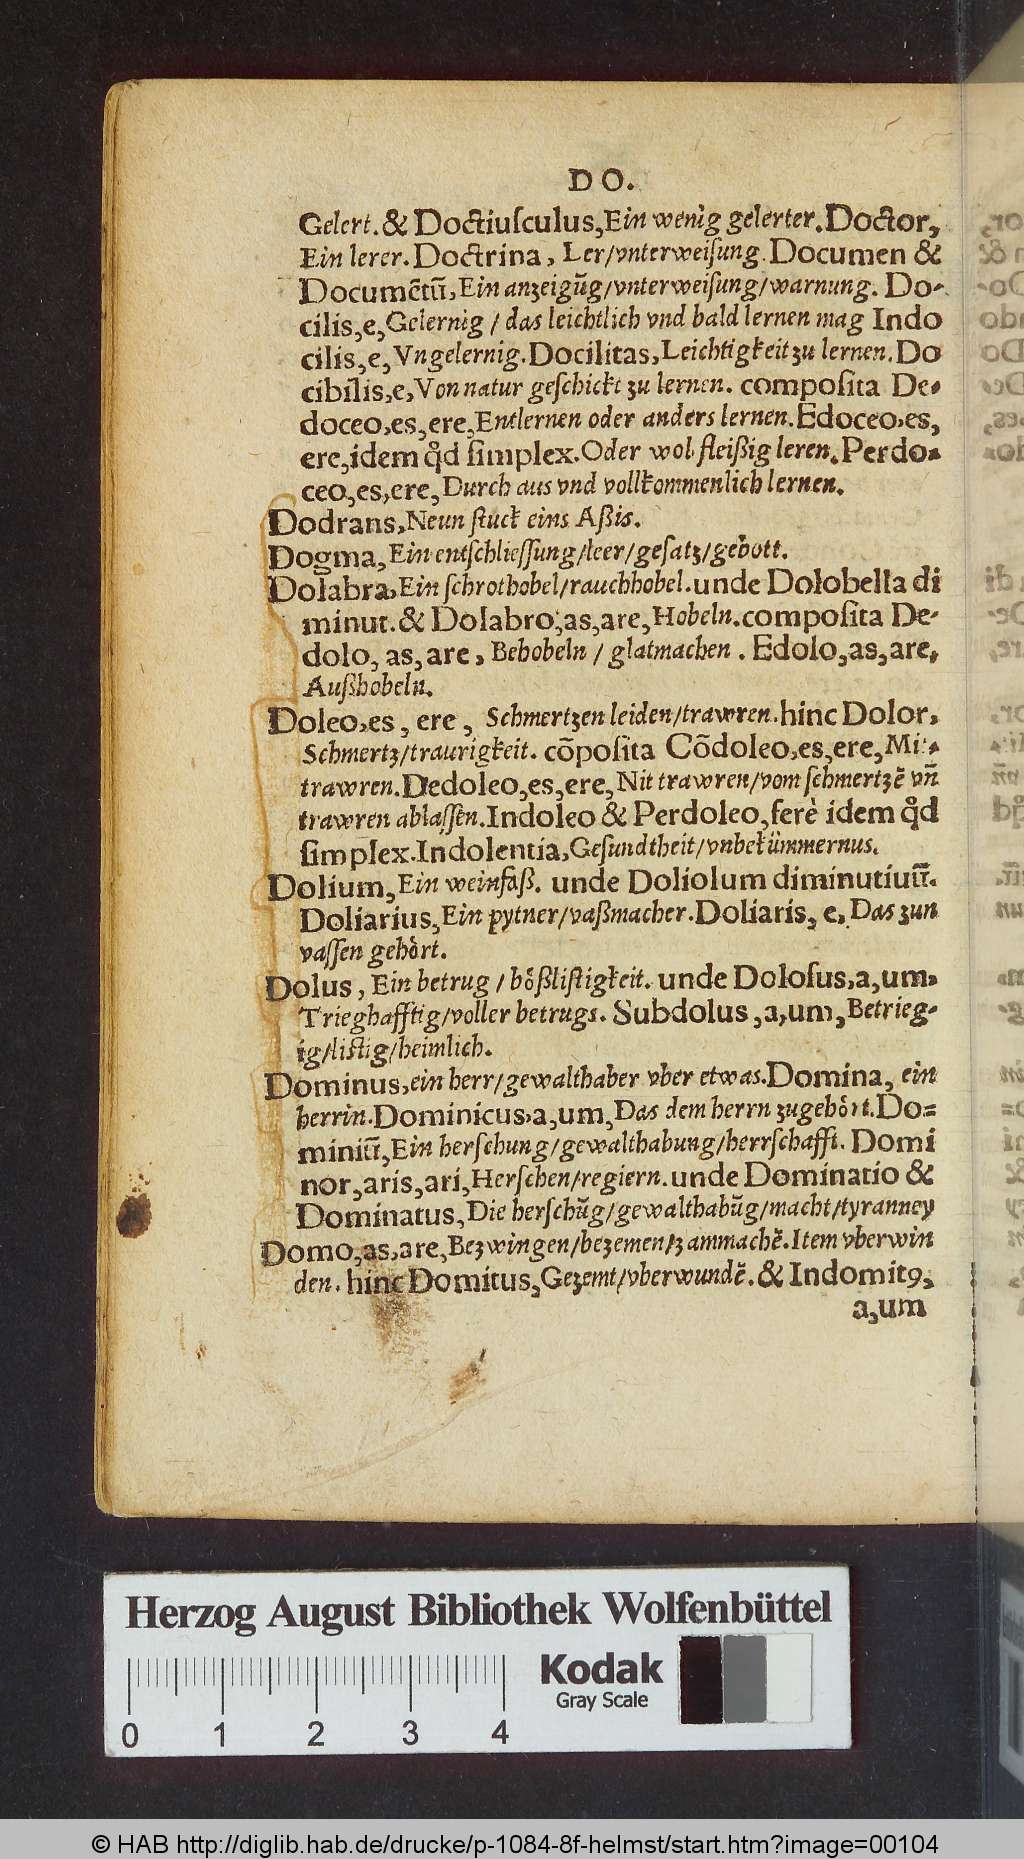 DO.
Gelert. & Doctiuſculus, Ein wenig gelerter. Doctor,
Ein lerer. Doctrina, Ler/vnterweiſung. Documen &
Documẽtũ, Ein anzeigũg/vnterweiſung/warnung. Do-
cilis,e, Gelernig / das leichtlich vnd bald lernen mag Indo
cilis,e, Vngelernig. Docilitas, Leichtigkeit zu lernen. Do
cibilis,e, Von natur geſchickt zu lernen. compoſita De-
doceo,es,ere, Entlernen oder anders lernen. Edoceo,es,
ere,idem q̊d ſimplex. Oder wol fleißig leren. Perdo-
ceo,es,ere, Durch aus vnd vollkommenlich lernen.
Dodrans, Neun ſtuck eins Aßis.
Dogma, Ein entſchlieſſung/leer/geſatz/gebott.
Dolabra, Ein ſchrothobel/rauchhobel. unde Dolobella di
minut. & Dolabro,as,are, Hobeln. compoſita De-
dolo, as, are, Behobeln / glatmachen . Edolo,as,are,
Außhobeln.
Doleo,es, ere, Schmertzen leiden/trawren. hinc Dolor,
Schmertz/traurigkeit. cõpoſita Cõdoleo,es,ere, Mit-
trawren. Dedoleo,es,ere, Nit trawren/vom ſchmertzẽ vñ
trawren ablaſſen. Indoleo & Perdoleo,ferè idem q̊d
ſimplex. Indolentia, Geſundtheit/vnbekümmernus.
Dolium, Ein weinfaß. unde Doliolum diminutiuũ.
Doliarius, Ein pytner/vaßmacher. Doliaris, e, Das zun
vaſſen gehȯrt.
Dolus, Ein betrug / bößliſtigkeit. unde Doloſus,a,um,
Trieghafftig/voller betrugs. Subdolus,a,um, Betrieg-
ig/liſtig/heimlich.
Dominus, ein herr/gewalthaber vber etwas. Domina, ein
herrin. Dominicus,a,um, Das dem herrn zugehȯrt. Do-
miniũ, Ein herſchung/gewalthabung/herrſchafft. Domi
nor,aris,ari, Herſchen/regiern. unde Dominatio &
Dominatus, Die herſchũg/gewalthabũg/macht/tyranney
Domo,as,are, Bezwingen/bezemen/zammachẽ. Item vberwin
den. hinc Domitus, Gezemt/vberwundẽ. & Indomitꝰ,
a,um
Herzog August Bibliothek Wolfenbüttel
Kodak
Gray Scale
0 1 2 3 4
© HAB http://diglib.hab.de/drucke/p-1084-8f-helmst/start.htm?image=00104